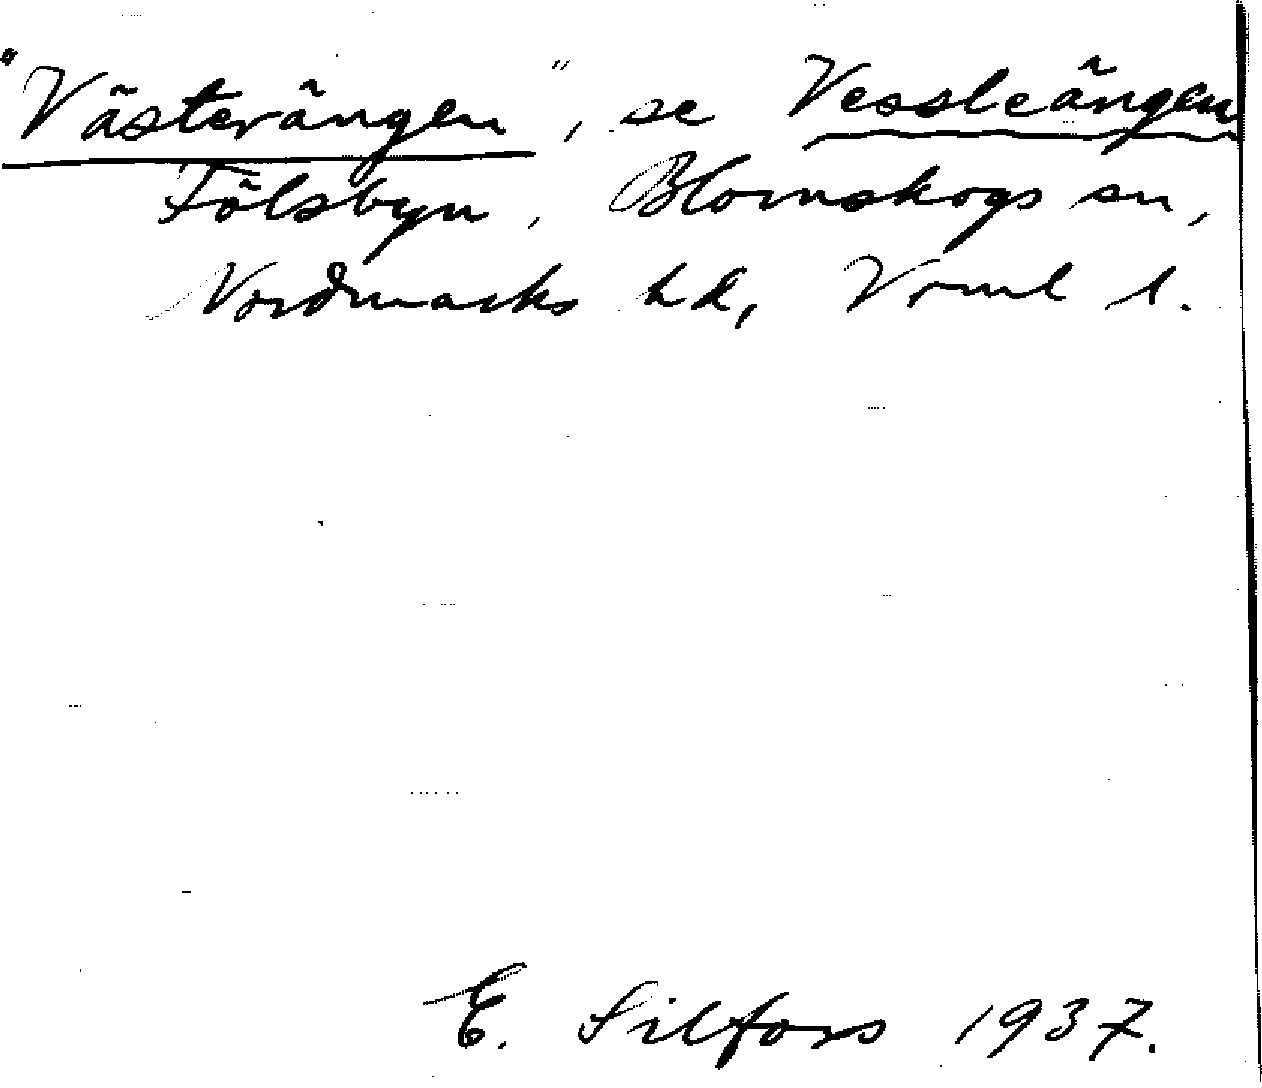 "Västerängen", se Vessleängen
Fölsbyn, Blomskogs sn,
Nordmarks hd, Vrml l.
E. Silfors 1937.